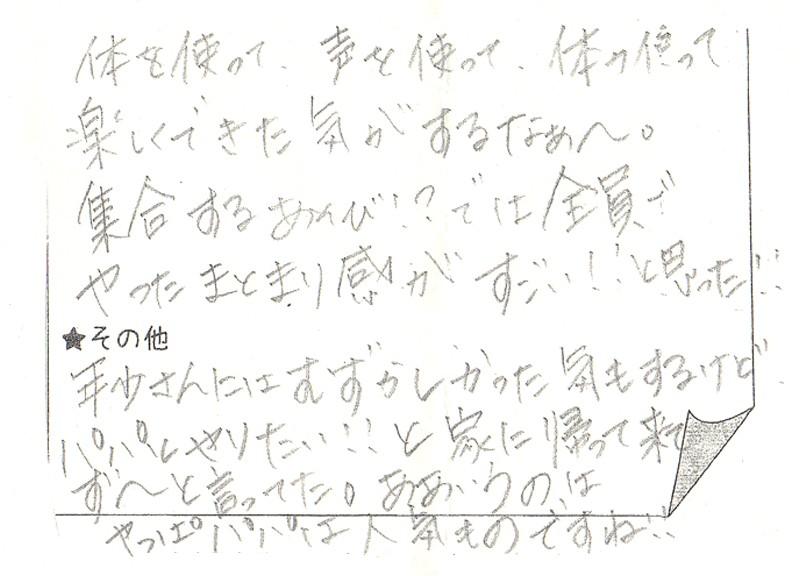 体を使って、声を使って、体力使って
楽しくできた気がするなぁ〜。
集合するあそび!?では全員で
やったまとまり感がすごい!!と思った!!
★その他
年少さんにはむずかしかった気もするけど
パパとやりたい!!と家に帰って来て
ず〜と言ってた。ああいうのは
やっぱパパは人気ものですね!!